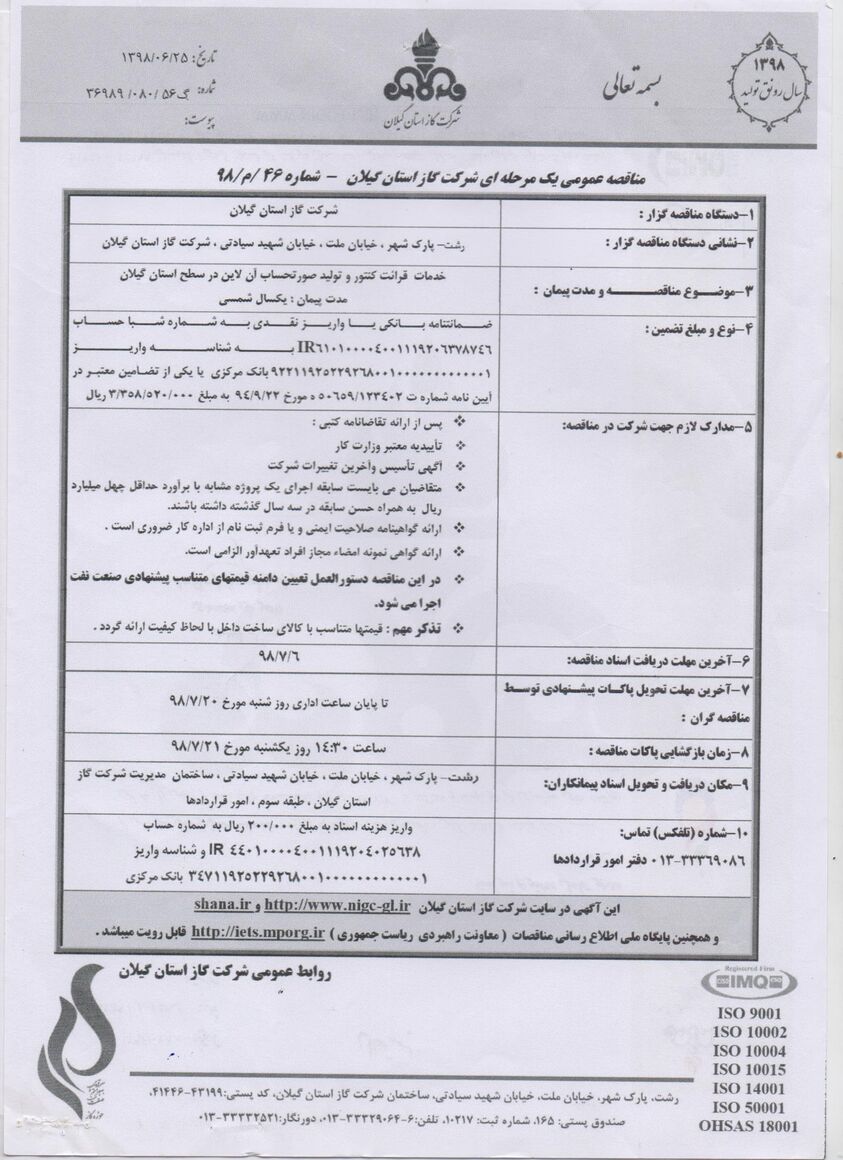 تاریخ: ۱۳۹۸/۰۶/۲۵
شماره: گ۵۶/ ۰۸۰/ ۳۶۹۸۹
پیوست:
شرکت گاز استان گیلان
بسمه تعالی
۱۳۹۸
سال رونق تولید
مناقصه عمومی یک مرحله ای شرکت گاز استان گیلان - شماره ۴۶ /م/ ۹۸
۱-دستگاه مناقصه گزار :
شرکت گاز استان گیلان
۲-نشانی دستگاه مناقصه گزار :
رشت- پارک شهر ، خیابان ملت ، خیابان شهید سیادتی ، شرکت گاز استان گیلان
۳-موضوع مناقصه و مدت پیمان :
خدمات قرائت کنتور و تولید صورتحساب آن لاین در سطح استان گیلان
مدت پیمان : یکسال شمسی
۴-نوع و مبلغ تضمین :
ضمانتنامه بانکی یا واریز نقدی به شماره شبا حساب
IR۶۱۰۱۰۰۰۰۴۰۰۱۱۱۹۲۰۶۳۷۸۷۴۶ به شناسه واریز
۹۲۲۱۱۹۲۵۲۲۹۲۶۸۰۰۱۰۰۰۰۰۰۰۰۰۰۰۰۱ بانک مرکزی یا یکی از تضامین معتبر در
آیین نامه شماره ت ۵۰۶۵۹/۱۲۳۴۰۲ ه مورخ ۹۴/۹/۲۲ به مبلغ ۳/۳۵۸/۵۲۰/۰۰۰ ریال
۵-مدارک لازم جهت شرکت در مناقصه:
❖ پس از ارائه تقاضانامه کتبی :
❖ تأییدیه معتبر وزارت کار
❖ آگهی تأسیس وآخرین تغییرات شرکت
❖ متقاضیان می بایست سابقه اجرای یک پروژه مشابه با برآورد حداقل چهل میلیارد
ریال به همراه حسن سابقه در سه سال گذشته داشته باشند.
❖ ارائه گواهینامه صلاحیت ایمنی و یا فرم ثبت نام از اداره کار ضروری است .
❖ ارائه گواهی نمونه امضاء مجاز افراد تعهدآور الزامی است.
❖ در این مناقصه دستورالعمل تعیین دامنه قیمتهای متناسب پیشنهادی صنعت نفت
اجرا می شود.
❖ تذکر مهم : قیمتها متناسب با کالای ساخت داخل با لحاظ کیفیت ارائه گردد .
۶-آخرین مهلت دریافت اسناد مناقصه:
۹۸/۷/۶
۷-آخرین مهلت تحویل پاکات پیشنهادی توسط
مناقصه گران :
تا پایان ساعت اداری روز شنبه مورخ ۹۸/۷/۲۰
۸-زمان بازگشایی پاکات مناقصه :
ساعت ۱۴:۳۰ روز یکشنبه مورخ ۹۸/۷/۲۱
۹-مکان دریافت و تحویل اسناد پیمانکاران:
رشت- پارک شهر ، خیابان ملت ، خیابان شهید سیادتی ، ساختمان مدیریت شرکت گاز
استان گیلان ، طبقه سوم ، امور قراردادها
۱۰-شماره (تلفکس) تماس:
۰۱۳-۳۳۳۶۹۰۸۶ دفتر امور قراردادها
واریز هزینه اسناد به مبلغ ۲۰۰/۰۰۰ ریال به شماره حساب
IR ۴۴۰۱۰۰۰۰۴۰۰۱۱۱۹۲۰۴۰۲۵۶۳۸ و شناسه واریز
۳۴۷۱۱۹۲۵۲۲۹۲۶۸۰۰۱۰۰۰۰۰۰۰۰۰۰۰۰۱ بانک مرکزی
این آگهی در سایت شرکت گاز استان گیلان http://www.nigc-gl.ir و shana.ir
و همچنین پایگاه ملی اطلاع رسانی مناقصات ( معاونت راهبردی ریاست جمهوری ) http://iets.mporg.ir قابل رویت میباشد .
روابط عمومی شرکت گاز استان گیلان
Registered Firm
IMQ
ISO 9001
1SO 10002
ISO 10004
ISO 10015
ISO 14001
ISO 50001
OHSAS 18001
رشت، پارک شهر، خیابان ملت، خیابان شهید سیادتی، ساختمان شرکت گاز استان گیلان، کد پستی:۴۳۱۹۹-۴۱۴۴۶،
صندوق پستی: ۱۶۵، شماره ثبت: ۱۰۲۱۷، تلفن:۶-۳۳۳۲۹۰۶۴-۰۱۳، دورنگار:۳۳۳۳۲۵۲۱-۰۱۳